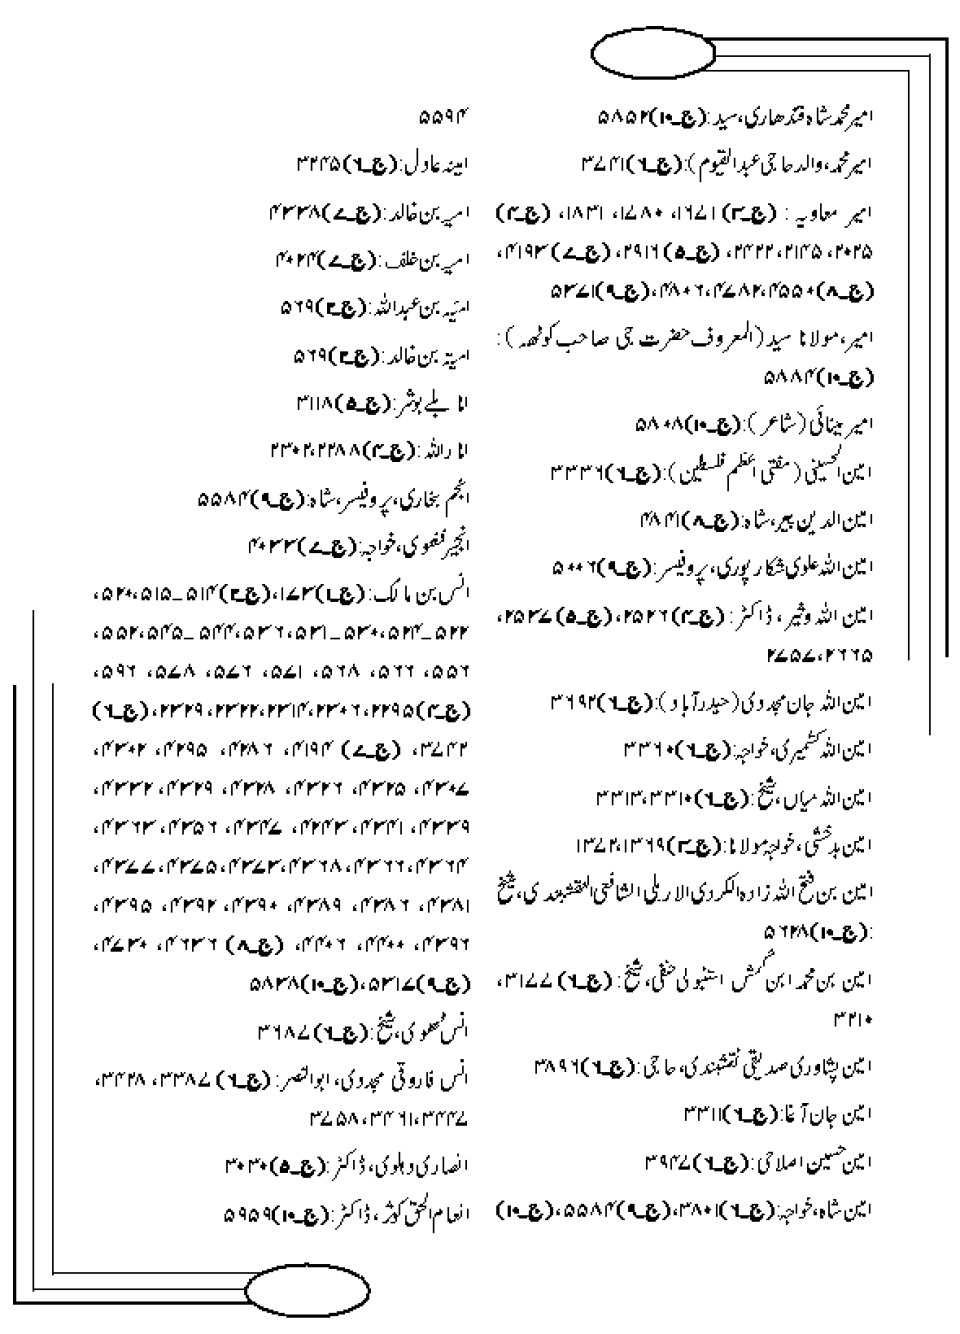 امیر محمد شاہ قندھاری، سید:(ج۔۱۰)۵۸۵۲
امیر محمد، والد حاجی عبدالقیوم):(ج۔۶)۳۷۴۱
امیر معاویہ : (ج۔۳)۱۶۷۱، ۱۷۸۰، ۱۸۳۱، (ج۔۴)
۲۰۲۵، ۲۱۴۵، ۲۴۲۲، (ج۔۵)۲۹۱۶، (ج۔۷)۴۱۹۳،
(ج۔۸)۴۵۵۰، ۴۷۸۲، ۴۸۰۶، (ج۔۹)۵۳۷۱
امیر، مولانا سید (المعروف حضرت جی صاحب کوٹھہ ) :
(ج۔۱۰)۵۸۸۴
امیر مینائی (شاعر):(ج۔۱۰)۵۸۰۸
امین الحسینی (مفتی اعظم فلسطین):(ج۔۶)۳۳۳۶
امین الدین پیر، شاہ:(ج۔۸)۴۸۴۱
امین اللہ علوی شکارپوری، پروفیسر:(ج۔۹)۵۰۰۶
امین اللہ وثیر، ڈاکٹر: (ج۔۴)۲۵۲۶، (ج۔۵)۲۵۳۷،
۲۶۶۵، ۲۷۵۷
امین اللہ جان مجددی (حیدرآباد):(ج۔۶)۳۶۹۲
امین اللہ کشمیری، خواجہ:(ج۔۶)۳۳۶۰
امین اللہ میاں، شیخ:(ج۔۶)۳۳۱۰، ۳۳۱۳
امین بدخشی، خواجہ مولانا:(ج۔۳)۱۳۶۹، ۱۳۷۲
امین بن فتح اللہ زادہ الکردی الاربلی الشافعی النقشبندی، شیخ
:(ج۔۱۰)۵۶۲۸
امین بن محمد ابن گمش استنبولی حنفی، شیخ: (ج۔۶)۳۱۷۷،
۳۲۱۰
امین پشاوری صدیقی نقشبندی، حاجی:(ج۔۶)۳۸۹۶
امین جان آغا:(ج۔۶)۳۳۱۱
امین حسین اصلاحی:(ج۔۶)۳۹۴۷
امین شاہ، خواجہ:(ج۔۶)۳۸۰۱، (ج۔۹)۵۵۸۴، (ج۔۱۰)
۵۵۹۴
امینہ عادل:(ج۔۶)۳۲۴۵
امیر بن خالد:(ج۔۷)۴۳۳۸
امیر بن خلف:(ج۔۷)۴۰۲۴
امیّہ بن عبداللہ:(ج۔۲)۵۶۹
امیّہ بن خالد:(ج۔۲)۵۶۹
انا بلے بوشر:(ج۔۵)۳۱۱۸
انا راللہ:(ج۔۴)۲۲۸۸، ۲۳۰۲
انجم بخاری، پروفیسر، شاہ:(ج۔۹)۵۵۸۴
انجیر فغنوی، خواجہ:(ج۔۷)۴۰۳۳
انس بن مالک:(ج۔۱)۱۷۳، (ج۔۲)۵۱۴۔۵۱۵، ۵۲۰،
۵۲۲۔۵۲۴، ۵۳۰۔۵۳۱، ۵۳۶، ۵۴۴۔۵۴۵، ۵۵۲،
۵۵۶، ۵۶۶، ۵۶۸، ۵۷۱، ۵۷۶، ۵۷۸، ۵۹۶،
(ج۔۴)۲۲۹۵، ۲۳۰۶، ۲۳۱۴، ۲۳۲۲، ۲۳۲۹، (ج۔۶)
۳۷۴۲، (ج۔۷) ۴۱۹۴، ۴۲۸۶، ۴۲۹۵، ۴۳۰۲،
۴۳۰۷، ۴۳۲۵، ۴۳۲۶، ۴۳۲۸، ۴۳۲۹، ۴۳۳۲،
۴۳۳۹، ۴۳۴۱، ۴۲۴۳، ۴۳۴۷، ۴۳۵۶، ۴۳۶۳،
۴۳۶۴، ۴۳۶۶، ۴۳۶۸، ۴۳۷۳، ۴۳۷۵، ۴۳۷۷،
۴۳۸۱، ۴۳۸۶، ۴۳۸۹، ۴۳۹۰، ۴۳۹۲، ۴۳۹۵،
۴۳۹۶، ۴۴۰۰، ۴۴۰۶، (ج۔۸) ۴۶۳۶، ۴۷۳۰،
(ج۔۹)۵۳۱۷، (ج۔۱۰)۵۸۳۸
انس ٹھٹوی، شیخ:(ج۔۶)۳۶۸۷
انس فاروقی مجددی، ابوالنصر: (ج۔۶)۳۳۸۷، ۳۴۲۸،
۳۴۴۷، ۳۴۶۱، ۳۷۵۸
انصاری دہلوی، ڈاکٹر:(ج۔۵)۳۰۳۰
انعام الحق کوثر، ڈاکٹر:(ج۔۱۰)۵۹۵۹